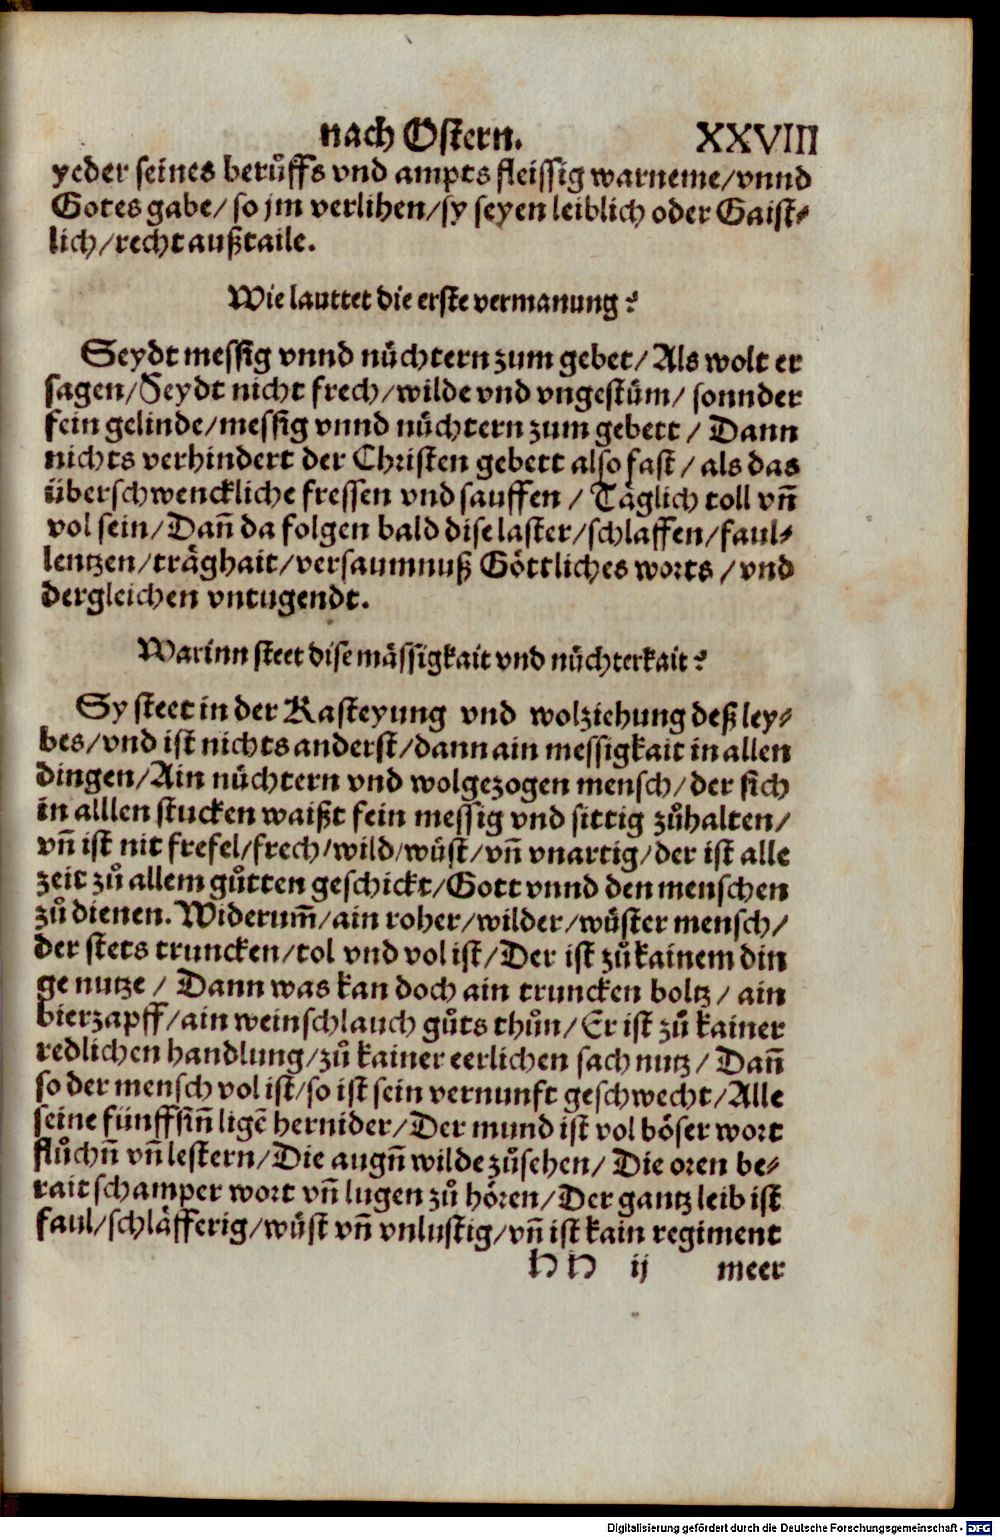 nach Ostern. XXVIII
yeder seines berůffs vnd ampts fleissig warneme/vnnd
Gotes gabe/ so jm verlihen/sy seyen leiblich oder Gaist-
lich/recht außtaile.
Wie lauttet die erste vermanung?
Seydt messig vnnd nüchtern zum gebet/Als wolt er
sagen/Seydt nicht frech/wilde vnd vngestüm/ sonnder
fein gelinde/messig vnnd nüchtern zum gebett/ Dann
nichts verhindert der Christen gebett also fast/ als das
überschwenckliche fressen vnd sauffen/ Täglich toll vn̄
vol sein/Dan̄ da folgen bald dise laster/schlaffen/faul-
lentzen/träghait/versaumnuß Göttliches worts/vnd
dergleichen vntugendt.
Warinn steet dise mässigkait vnd nüchterkait?
Sy steet in der Kasteyung vnd wolziehung deß ley-
bes/vnd ist nichts anderst/dann ain messigkait in allen
dingen/Ain nüchtern vnd wolgezogen mensch/der sich
in alllen stucken waißt fein messig vnd sittig zůhalten/
vn̄ ist nit frefel/frech/wild/wüst/vn̄ vnartig/der ist alle
zeit zů allem gůtten geschickt/Gott vnnd den menschen
zů dienen. Widerum̄/ain roher/wilder/wüster mensch/
der stets truncken/tol vnd vol ist/Der ist zů kainem din
ge nutze/ Dann was kan doch ain truncken boltz/ ain
bierzapff/ain weinschlauch gůts thůn/Er ist zů kainer
redlichen handlung/zů kainer eerlichen sach nutz/ Dan̄
so der mensch vol ist/so ist sein vernunft geschwecht/Alle
seine fünff sin̄ ligē hernider/Der mund ist vol böser wort
flůchn̄ vn̄ lestern/Die augn̄ wilde zůsehen/ Die oren be-
rait schamper wort vn̄ lugen zů hören/Der gantz leib ist
faul/schläfferig/wüst vn̄ vnlustig/vn̄ ist kain regiment
HH ij meer
Digitalisierung gefördert durch die Deutsche Forschungsgemeinschaft - DFG